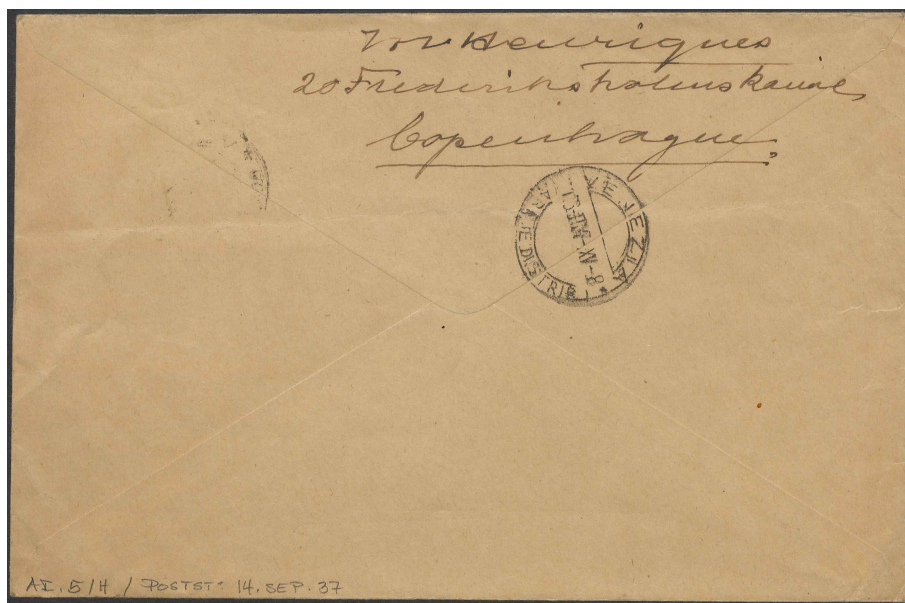 Henriques
20 Frederiksholmskanal
Copenhague
VENEZIA
ARRIVI E DISTRIB
AI. 5/H / POSTST: 14. SEP. 37